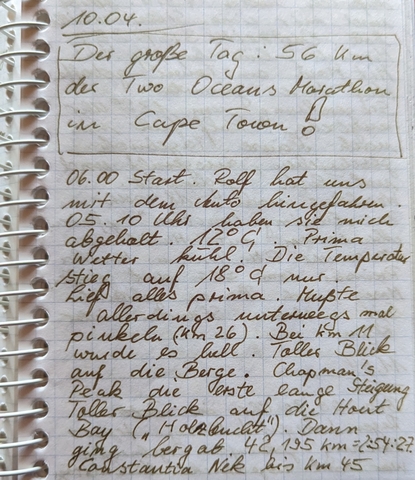 10.04.
Der große Tag: 56 km
der Two Oceans Marathon
in Cape Town!
06.00 Start. Rolf hat uns
mit dem Auto hingefahren.
05.10 Uhr haben sie mich
abgeholt. 12°C. Prima
Wetter kühl. Die Temperatur
stieg auf 18°C nur.
Lief alles prima. Mußte
allerdings unterwegs mal
pinkeln (km 26). Bei km 11
wurde es hell. Toller Blick
auf die Berge. Chapman's
Peak die erste lange Steigung
Toller Blick auf die Hout
Bay („Holzbucht"). Dann
ging bergab 42,195 km = 2:54:27.
Constantia Nek bis km 45